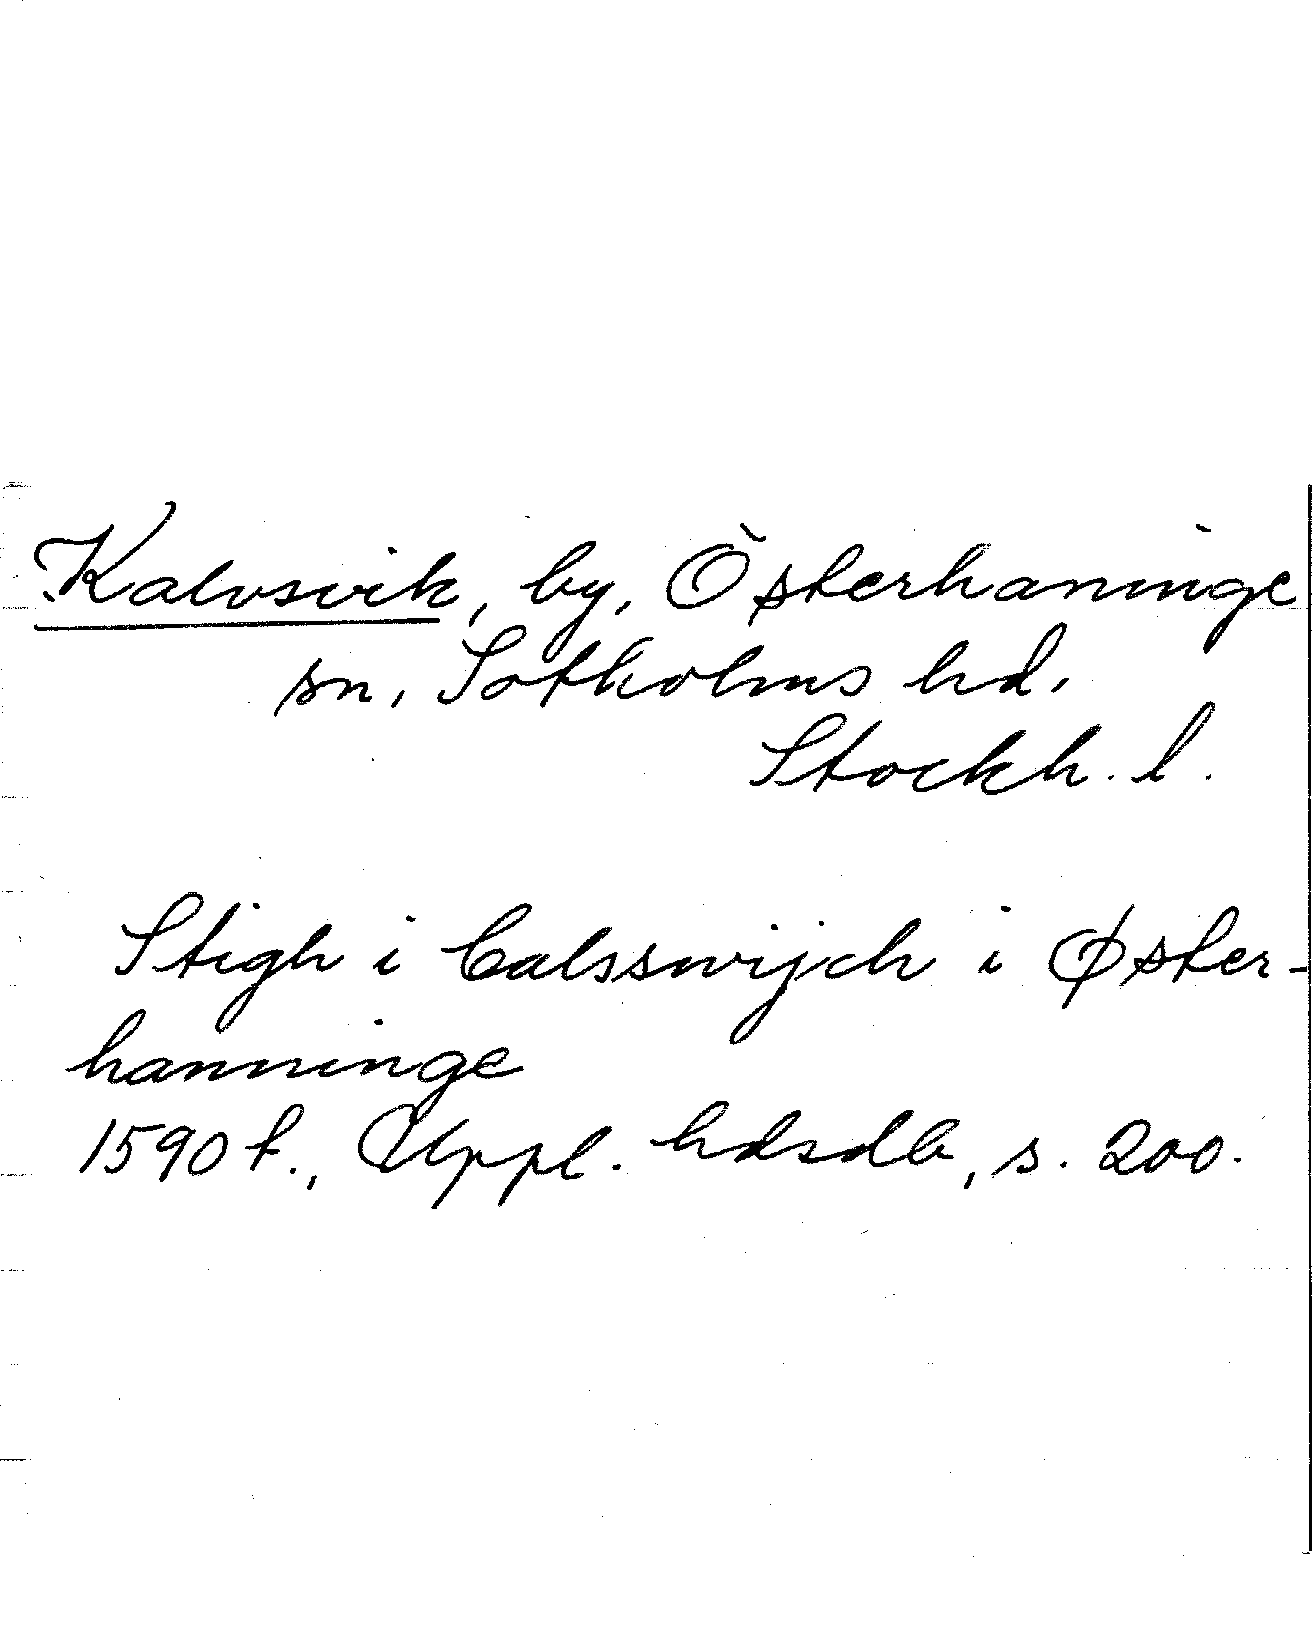 Kalvsvik, by, Österhaninge
sn, Sotholms hd,
Stockh. l.
Stigh i Calsswijch i Øster-
hanninge
1590 t., Uppl. hdsdb, s. 200.